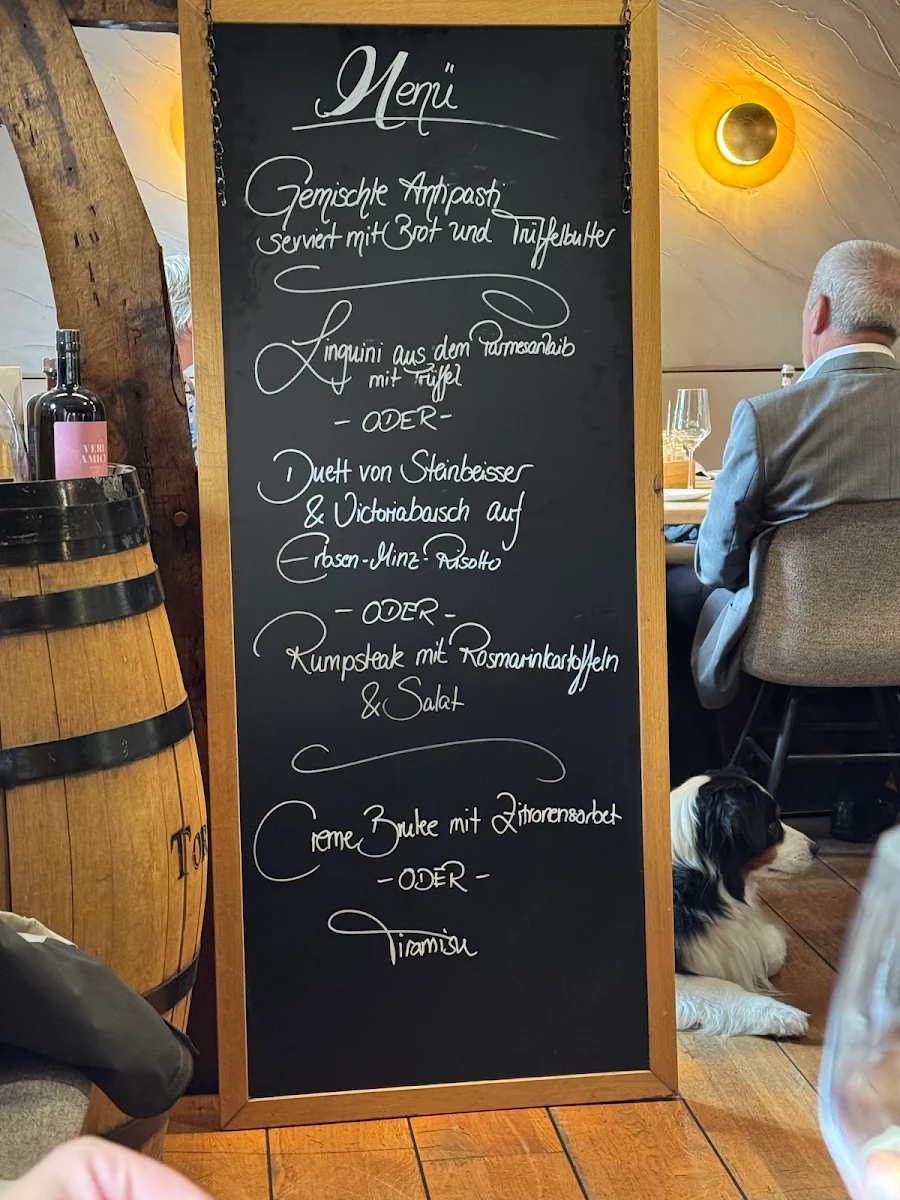 Menü
Gemischte Antipasti
serviert mit Brot und Trüffelbutter
Linguini aus dem Parmesanlaib
mit Trüffel
- ODER -
Duett von Steinbeisser
& Victoriabarsch auf
Erbsen-Minz-Risotto
- ODER -
Rumpsteak mit Rosmarinkartoffeln
& Salat
Creme Brulee mit Zitronensorbet
- ODER -
Tiramisu
VERI
AMICI